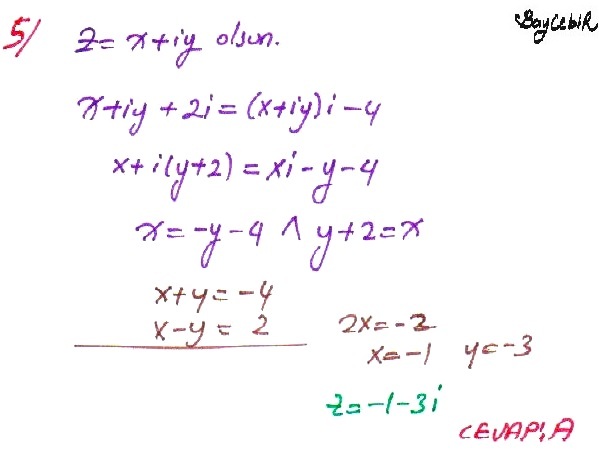 BayCebiR
5/ z = x+iy olsun.
x+iy + 2i = (x+iy)i - 4
x+i(y+2) = xi - y - 4
x = -y - 4 ∧ y+2 = x
x+y = -4
x-y = 2
2x = -2
x = -1 y = -3
z = -1 - 3i
CEVAP: A